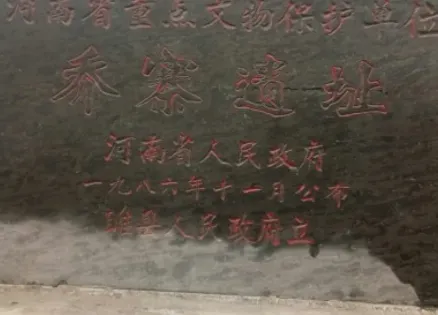 河南省重点文物保护单位
乔寨遗址
河南省人民政府
一九八六年十一月公布
睢县人民政府立